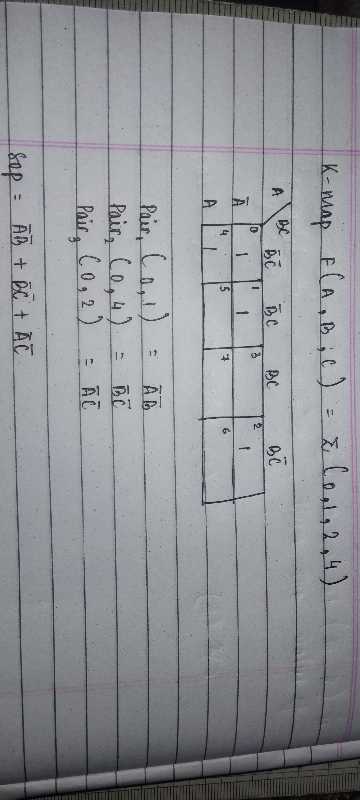 K-map F(A,B,C) = Σ(0,1,2,4)
A BC B̅C̅ B̅C BC BC̅
A̅ 0 1 1 1 3 2 1
A 4 1 5 7 6
Pair₁ (0,1) = A̅B̅
Pair₂ (0,4) = B̅C̅
Pair₃ (0,2) = A̅C̅
Sop = A̅B̅ + B̅C̅ + A̅C̅